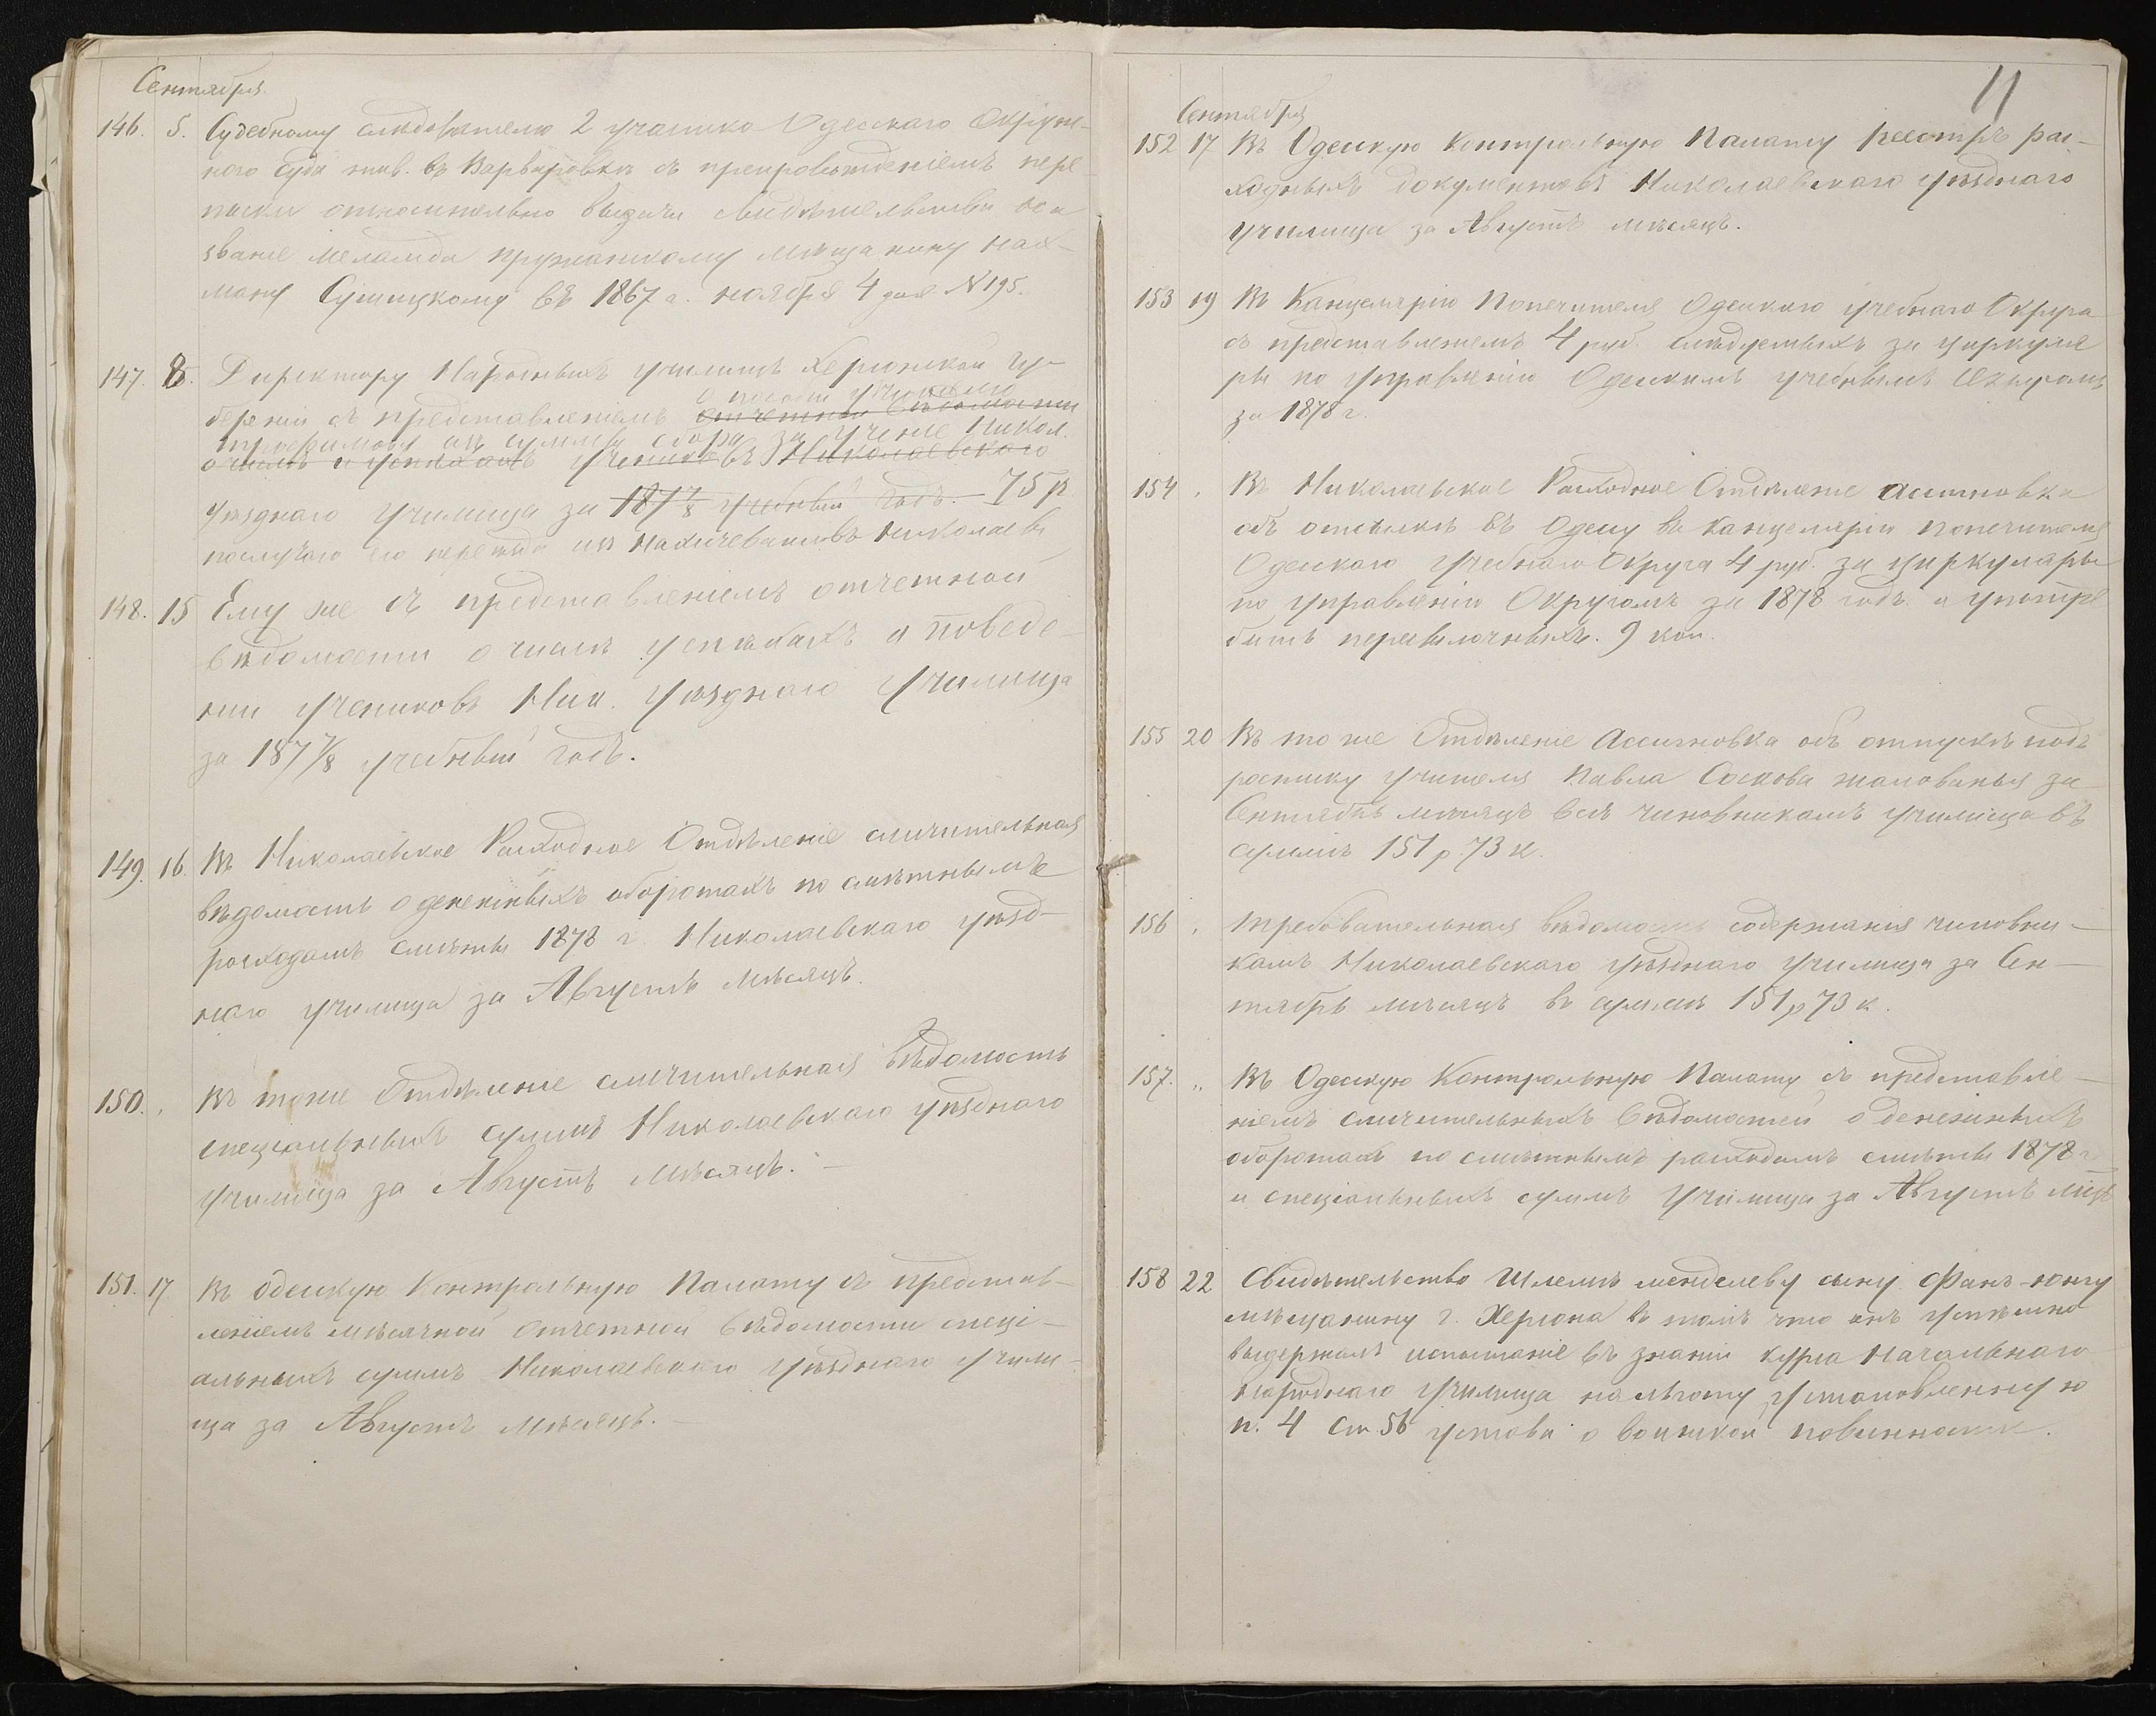 Сентября.
146. 5. Судебному слѣдователю 2 участка Одесскаго Окруж-
наго Суда жив. въ Варваровкѣ съ препровожденіемъ пере
писки относительно выдачи свидѣтельства на
званіе меламда пружанскому мѣщанину Нах-
ману Сушицкому въ 1867 г. ноября 4 дня №195.
147. 8. Директору Народныхъ училищъ Херсонской Гу-
о пособіи учителю
берніи съ представленіемъ отчетной вѣдомости
Трофимову изъ суммы сбора за ученіе Никол.
о числѣ и успѣхахъ учениковъ Николаевскаго
уѣзднаго училища за 187 7/8 учебный годъ. — 75 р
по случаю его переѣзда изъ Нахичевани въ Николаевъ
148. 15 Ему же съ представленіемъ отчетной
вѣдомости о числѣ успѣхахъ и поведе-
ніи учениковъ Ник. уѣзднаго училища
за 187 7/8 учебный годъ.
149. 16. Въ Николаевское Расходное Отдѣленіе сличительная
вѣдомость о денежныхъ оборотахъ по смѣтнымъ
расходамъ смѣты 1878 г. Николаевскаго уѣзд-
наго училища за Августъ мѣсяцъ.
150. , Въ тоже Отдѣленіе сличительная вѣдомость
спеціальныхъ суммъ Николаевскаго уѣзднаго
училища за Августъ мѣсяцъ. —
151. 17 Въ Одесскую Контрольную Палату съ представ-
леніемъ мѣсячной отчетной вѣдомости спеці-
альныхъ суммъ Николаевскаго уѣзднаго учили-
ща за Августъ мѣсяцъ. —
11
Сентября
152 17 Въ Одесскую Контрольную Палату реестръ рас-
ходныхъ документовъ Николаевскаго уѣзднаго
училища за Августъ мѣсяцъ.
153 19 Въ Канцелярію Попечителя Одесскаго учебнаго Округа
съ представленіемъ 4 руб. слѣдуемыхъ за циркуля
ры по управленію Одесскимъ учебнымъ Округомъ
за 1878 г.
154 , Въ Николаевское Расходное Отдѣленіе ассигновка
объ отсылкѣ въ Одессу въ Канцелярію попечителя
Одесскаго учебнаго Округа 4 руб. за циркуляры
по управленію Округомъ за 1878 годъ и употре
бить пересылочныхъ. 9 коп.
155 20 Въ то же Отдѣленіе Ассигновка объ отпускѣ подъ
росписку учителя Павла Соскова жалованья за
Сентябрь мѣсяцъ всѣмъ чиновникамъ училища въ
суммѣ 151 р 73 к.
156 , Требовательная вѣдомость содержанія чиновни-
камъ Николаевскаго уѣзднаго училища за Сен-
тябрь мѣсяцъ въ суммѣ 151 р 73 к.
157. „ Въ Одесскую Контрольную Палату съ представле-
ніемъ сличительныхъ вѣдомостей о денежныхъ
оборотахъ по смѣтнымъ расходамъ смѣты 1878 г
и спеціальныхъ суммъ училища за Августъ мѣцъ
158 22 Свидѣтельство Шлемѣ менделеву сыну Фанъ-Юнгу
мѣщанину г. Херсона въ томъ что онъ успѣшно
выдержалъ испытаніе въ знаніи курса Начальнаго
народнаго училища на льготу установленную
п. 4 Ст. 56 устава о воинской повинности.